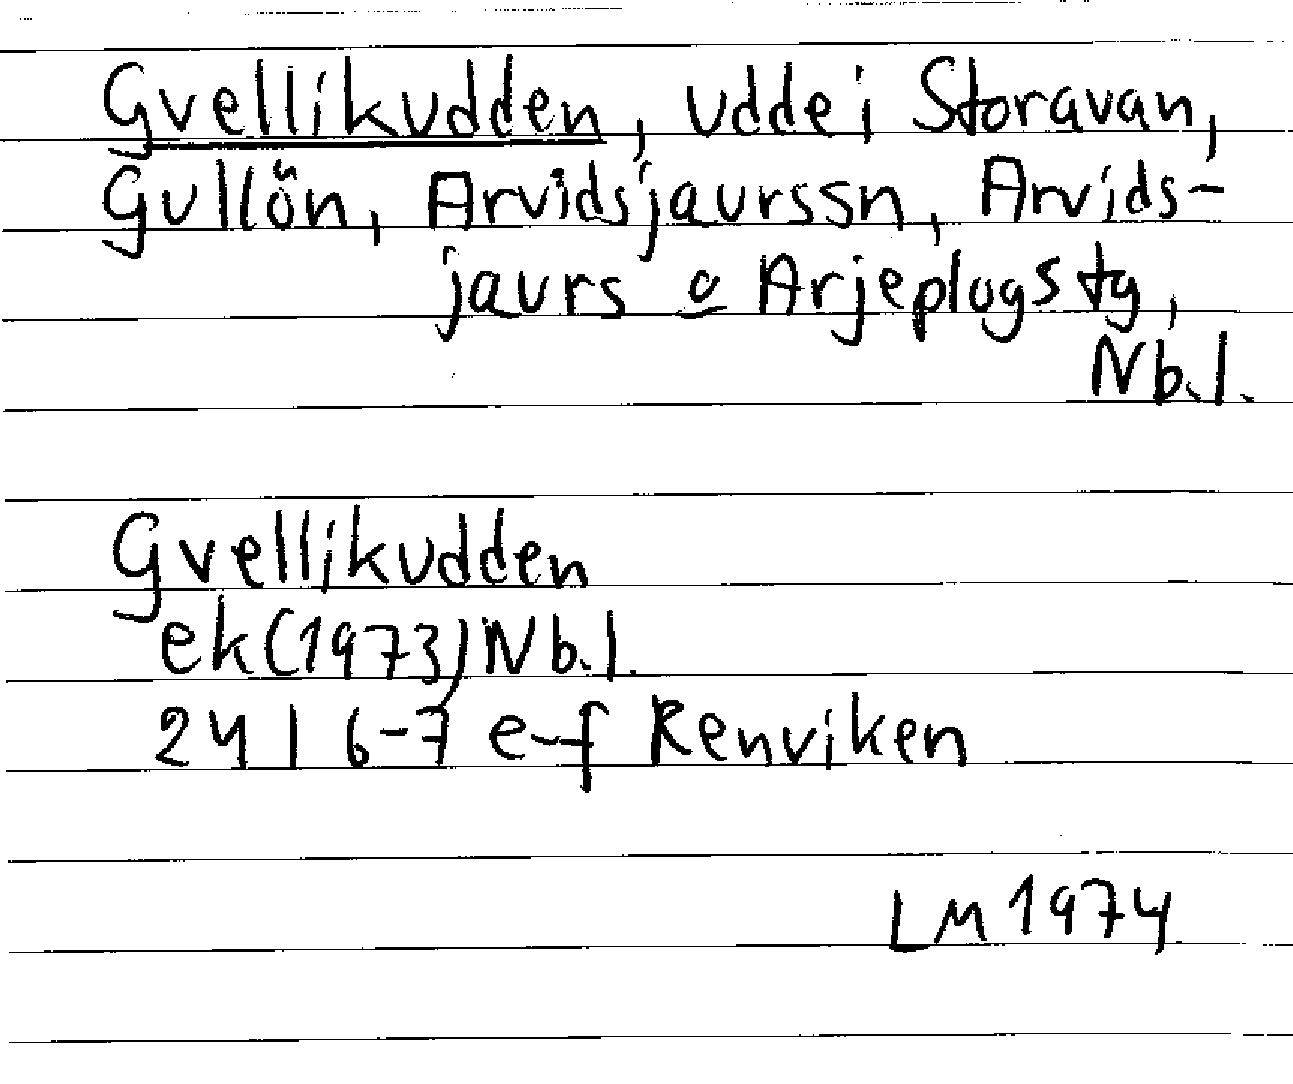 Gvellikudden, udde i Storavan,
Gullön, Arvidsjaurssn, Arvids-
jaurs o Arjeplogs tg,
Nb.l.
Gvellikudden
ek(1973) Nb.l.
24 I 6-7 e-f Renviken
LM 1974